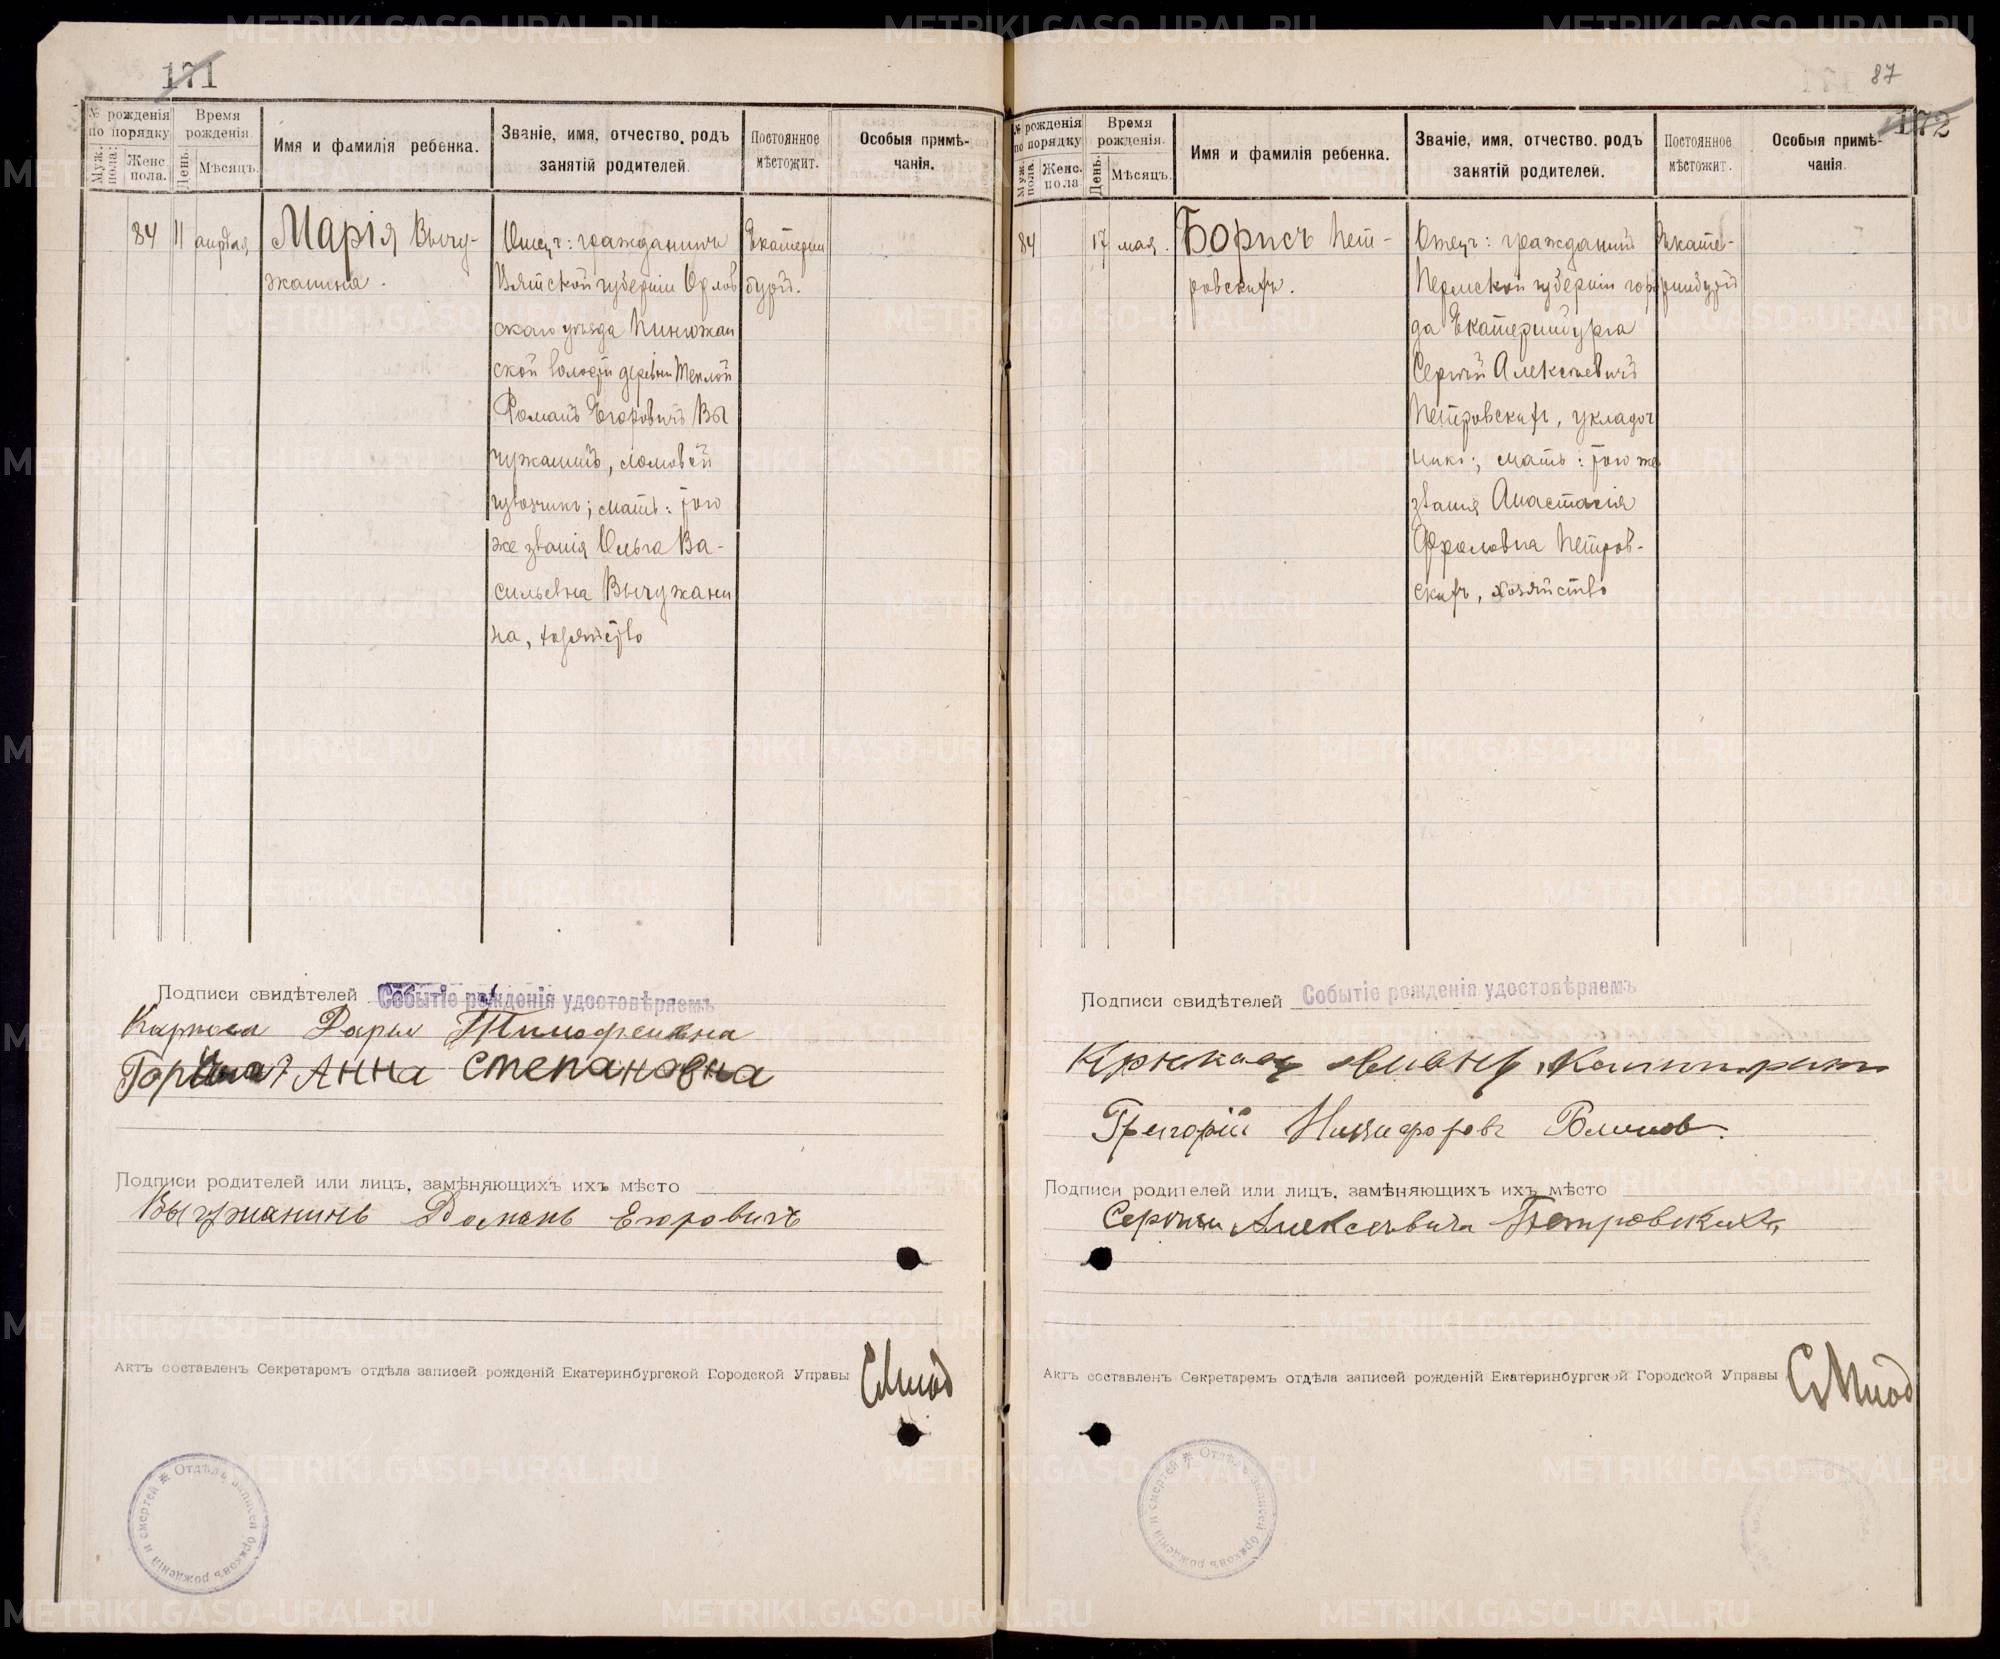 171
№ рожденія по порядку
Муж. пола.
Женс. пола.
Время рожденія
День.
Мѣсяцъ.
Имя и фамилія ребенка.
Званіе, имя, отчество, родъ занятій родителей.
Постоянное мѣстожит.
Особыя примѣчанія.
84
11
апрѣля
Марія Вычу-
жанина.
Отецъ: гражданинъ
Вятской губерніи Орлов
скаго уѣзда Пинюжан
ской волости деревни Теплой
Романъ Егоровичъ Вы
чужанинъ, ломовой
извозчикъ; мать: того
же званія Ольга Ва-
сильевна Вычужани
на, хозяйство
Екатерин
бургъ.
Подписи свидѣтелей Событіе рожденія удостовѣряемъ
Дарья Тимофеивна
Анна Степановна
Подписи родителей или лицъ, замѣняющихъ ихъ мѣсто
Вычужанинъ Романъ Егоровичъ
Актъ составленъ Секретаремъ отдѣла записей рожденій Екатеринбургской Городской Управы
Отдѣлъ записей браковъ рожденій и смертей
87
172
№ рожденія по порядку
Муж. пола.
Женс. пола
Время рожденія.
День.
Мѣсяцъ.
Имя и фамилія ребенка.
Званіе, имя, отчество, родъ занятій родителей.
Постоянное мѣстожит.
Особыя примѣчанія.
84
17
мая.
Борисъ Пет-
ровскихъ.
Отецъ: гражданинъ
Пермской губерніи горо
да Екатеринбурга
Сергѣй Алексѣевичъ
Петровскихъ, укладоч
никъ; мать: того же
званія Анастасія
Фроловна Петров-
скихъ, хозяйство
Екате-
ринбургъ
Подписи свидѣтелей Событіе рожденія удостовѣряемъ
Григорій Никифоровъ Блинов.
Подписи родителей или лицъ, замѣняющихъ ихъ мѣсто
Сергѣй Алексѣевичъ Петровскихъ
Актъ составленъ Секретаремъ отдѣла записей рожденій Екатеринбургской Городской Управы
Отдѣлъ записей браковъ рожденій и смертей
METRIKI.GASO-URAL.RU